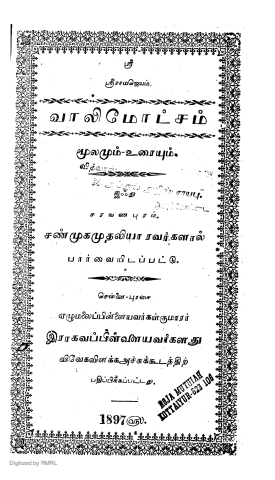 ஸ்ரீ
ஸ்ரீராமஜெயம்.
வாலிமோட்சம்
மூலமும்-உரையும்.
வித்வா
இஃது
சரவணபுரம்,
சண்முகமுதலியா ரவர்களால்
பார்வையிடப்பட்டு.
சென்னை-புரசை
ஏழுமலைப்பிள்ளையவர்கள்குமாரர்
இராகவப்பிள்ளையவர்களது
விவேகவிளக்கஅச்சுக்கூடத்திற்
பதிப்பிக்கப்பட்டது.
1897௵.
ROJA MUTHIAH
KOTTAIYUR-623 106
Digitized by RMRL